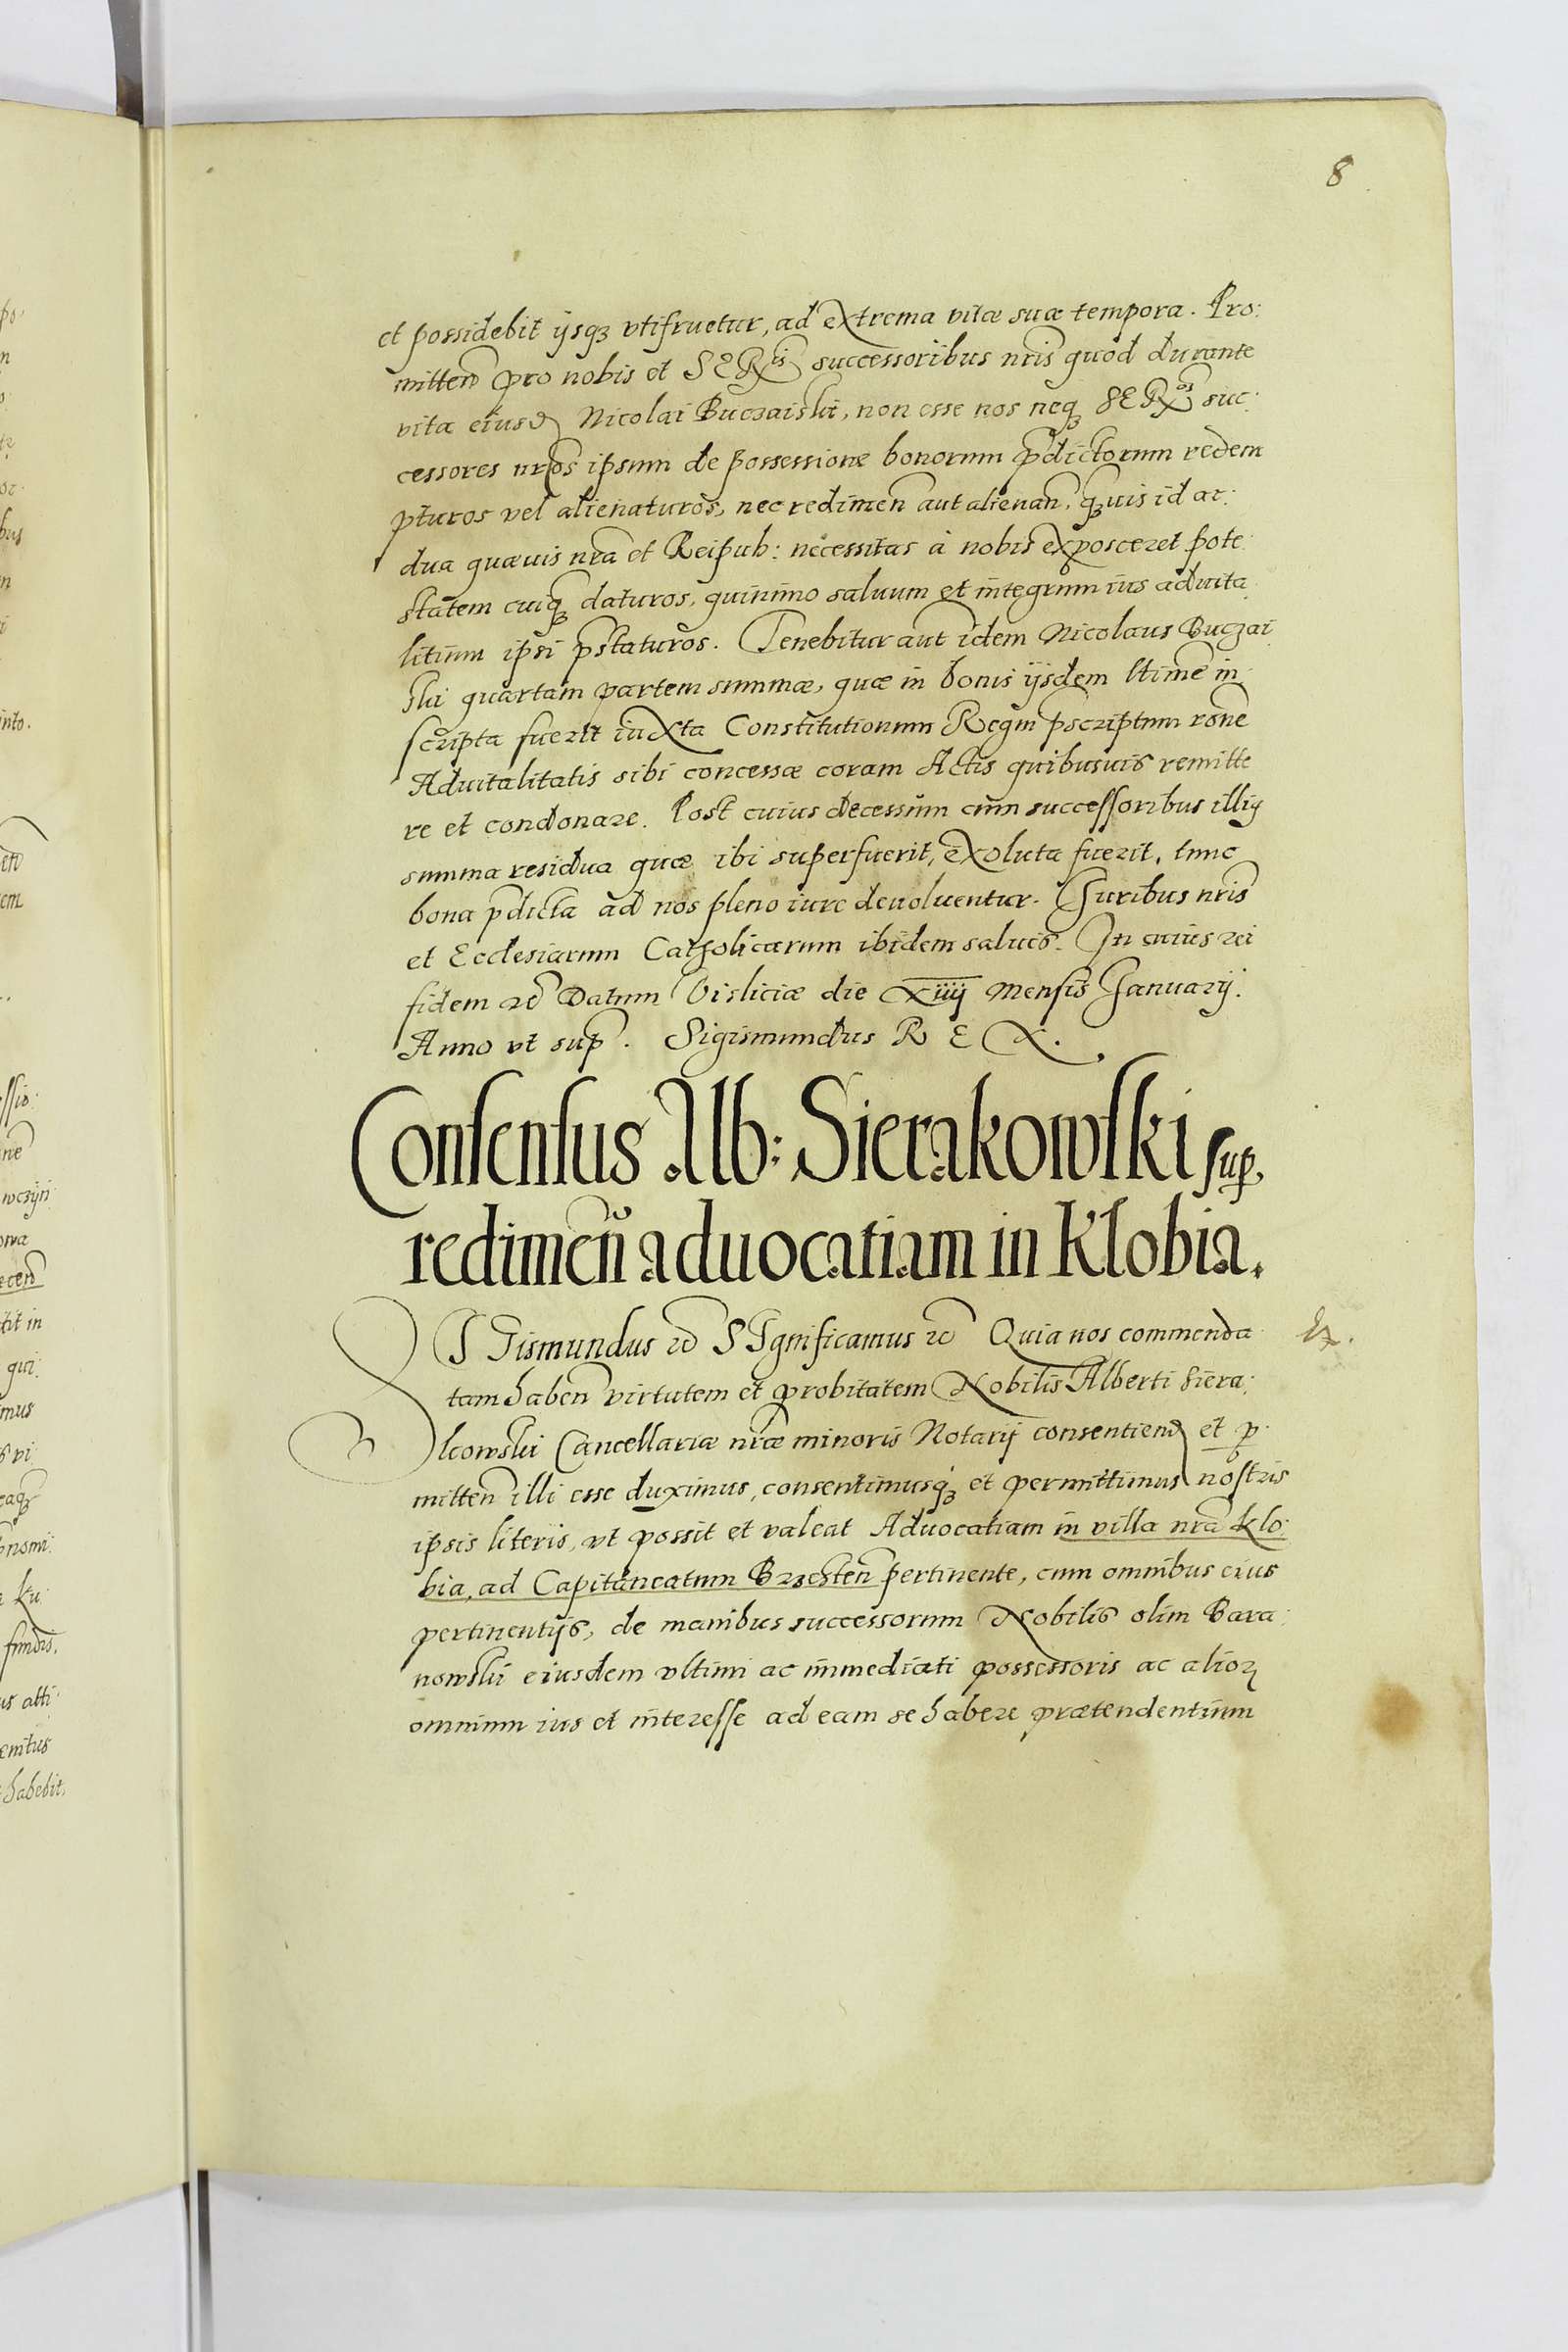 8
et possidebit ijsq₃ vtifruetur, ad extrema vitæ suæ tempora. Pro:
mitteñ pro nobis et SERis successoribus nris quod durante
vita eiusd Nicolai Buczaiski, non esse nos neq₃ SERos suc:
cessores nros ipsum de possessione bonorum pdictorum redem
pturos vel alienaturos, nec redimeñ aut alienañ, q̃uis id ar:
dua quæuis nra et Reipub: necessitas à nobis exposceret pote:
statem cuiq₃ daturos, quinimo saluum et integrum ius aduita
litium ipsi pstaturos. Tenebitur aut idem Nicolaus Buczai
ski quartam partem summæ, quæ in bonis ijsdem ltime in:
scripta fuerit iuxta Constitutionum Regni pscriptum rone
Aduitalitatis sibi concessæ coram Actis quibusuis remitte
re et condonare. Post cuius decessum cum successoribus illiꝯ
summa residua quæ ibi superfuerit, exoluta fuerit, tunc
bona pdicta ad nos pleno iure deuoluentur. Iuribus nris
et Ecclesiarum Catholicarum ibidem saluis. In cuius rei
fidem ꝛc Datum Visliciæ die XIIII mensis Januarij.
Anno vt sup. Sigismundus R E X.
Consensus Alb: Sierakowski sup.
redimeñ aduocatiam in Klobia.
SIGismundus ꝛc SIGnificamus ꝛc Quia nos commenda
tam habeñ virtutem et probitatem Nobilis Alberti Siera:
kowski Cancellariæ nræ minoris Notarij consentiend et p
mitteñ illi esse duximus, consentimusq₃ et permittimus nostris
ipsis literis, vt possit et valeat Aduocatiam in villa nra Klo:
bia, ad Capitaneatum Brzesteñ pertinente, cum omnibus eius
pertinentijs, de manibus successorum Nobilis olim Bara:
nowski eiusdem vltimi ac immediati possessoris ac alioꝝ
omnium ius et interesse ad eam se habere prætendentium